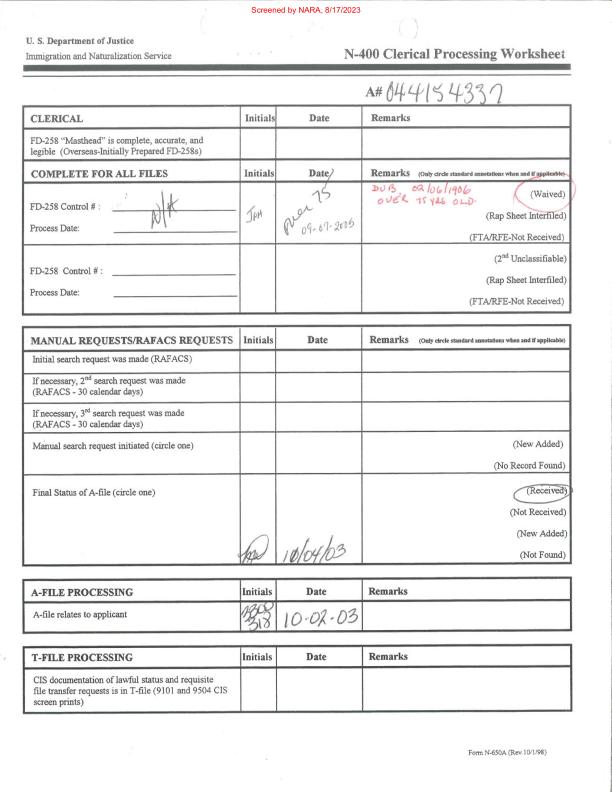 Screened by NARA, 8/17/2023
U. S. Department of Justice
Immigration and Naturalization Service
N-400 Clerical Processing Worksheet
A# 044154337
CLERICAL Initials Date Remarks
FD-258 "Masthead" is complete, accurate, and
legible (Overseas-Initially Prepared FD-258s)
COMPLETE FOR ALL FILES Initials Date Remarks (Only circle standard annotations when and if applicable)
DOB 02/06/1906
OVER 75 YRS OLD.
(Waived)
FD-258 Control # : N/A
over 75
(Rap Sheet Interfiled)
Process Date:
09-07-2005
(FTA/RFE-Not Received)
(2nd Unclassifiable)
FD-258 Control # :
(Rap Sheet Interfiled)
Process Date:
(FTA/RFE-Not Received)
MANUAL REQUESTS/RAFACS REQUESTS Initials Date Remarks (Only circle standard annotations when and if applicable)
Initial search request was made (RAFACS)
If necessary, 2nd search request was made
(RAFACS - 30 calendar days)
If necessary, 3rd search request was made
(RAFACS - 30 calendar days)
Manual search request initiated (circle one) (New Added)
(No Record Found)
Final Status of A-file (circle one) (Received)
(Not Received)
(New Added)
10/04/03 (Not Found)
A-FILE PROCESSING Initials Date Remarks
A-file relates to applicant 318 10-02-03
T-FILE PROCESSING Initials Date Remarks
CIS documentation of lawful status and requisite
file transfer requests is in T-file (9101 and 9504 CIS
screen prints)
Form N-650A (Rev.10/1/98)